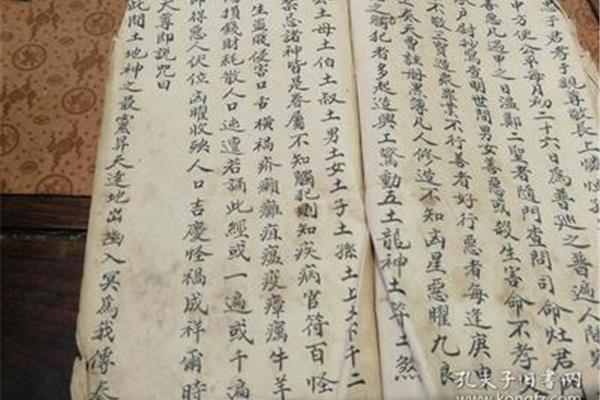 子君孝子親尊敬長上憐
中方便公平每月初二十六日為普巡之普遍人間男
善惡凡遇甲之日溫鄭二聖者隨門查問司命灶君
戶尉抄寫查明世間男女善惡或殺生害命不孝
不敬三寶造眾業不行善者好行惡者每逢庚申
之奏天曹註冊黑簿凡人修造不知凶星惡曜九良
之觸犯者多起造興工驚動五土龍神土府土煞
公土母土伯土叔土男土女土子土孫土上土下千二
禁忌諸神皆是眷屬不知觸犯則知疾病官符百怪
生盜賊侵害口舌橫禍疥癩癰疽瘟疫瘴癘牛羊
損錢財耗散人口迍邅若誦此經或一遍或千遍
得惡人伏位凶曜收殃人口吉慶怪禍成祥爾時
天尊即說咒曰
此間土地神之最靈昇天達地出幽入冥為我傳奏
孔夫子旧书网
www.kongfz.com